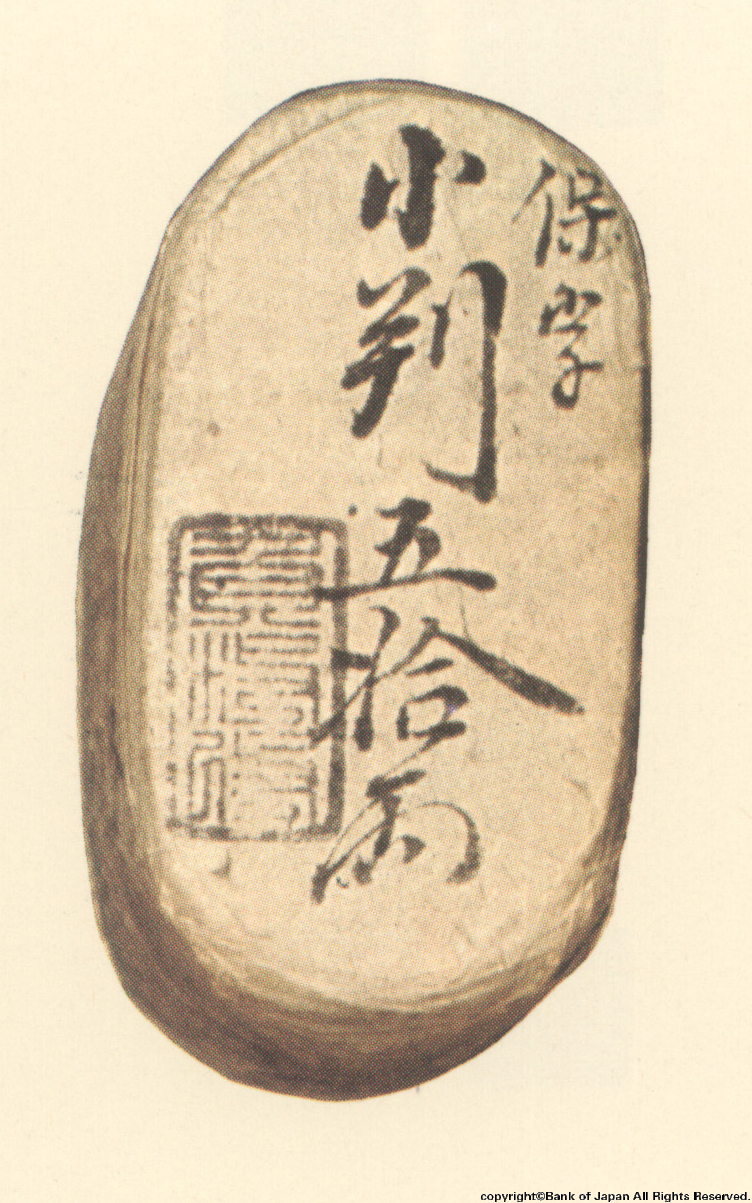 保字
小判五拾両
copyright©Bank of Japan All Rights Reserved.